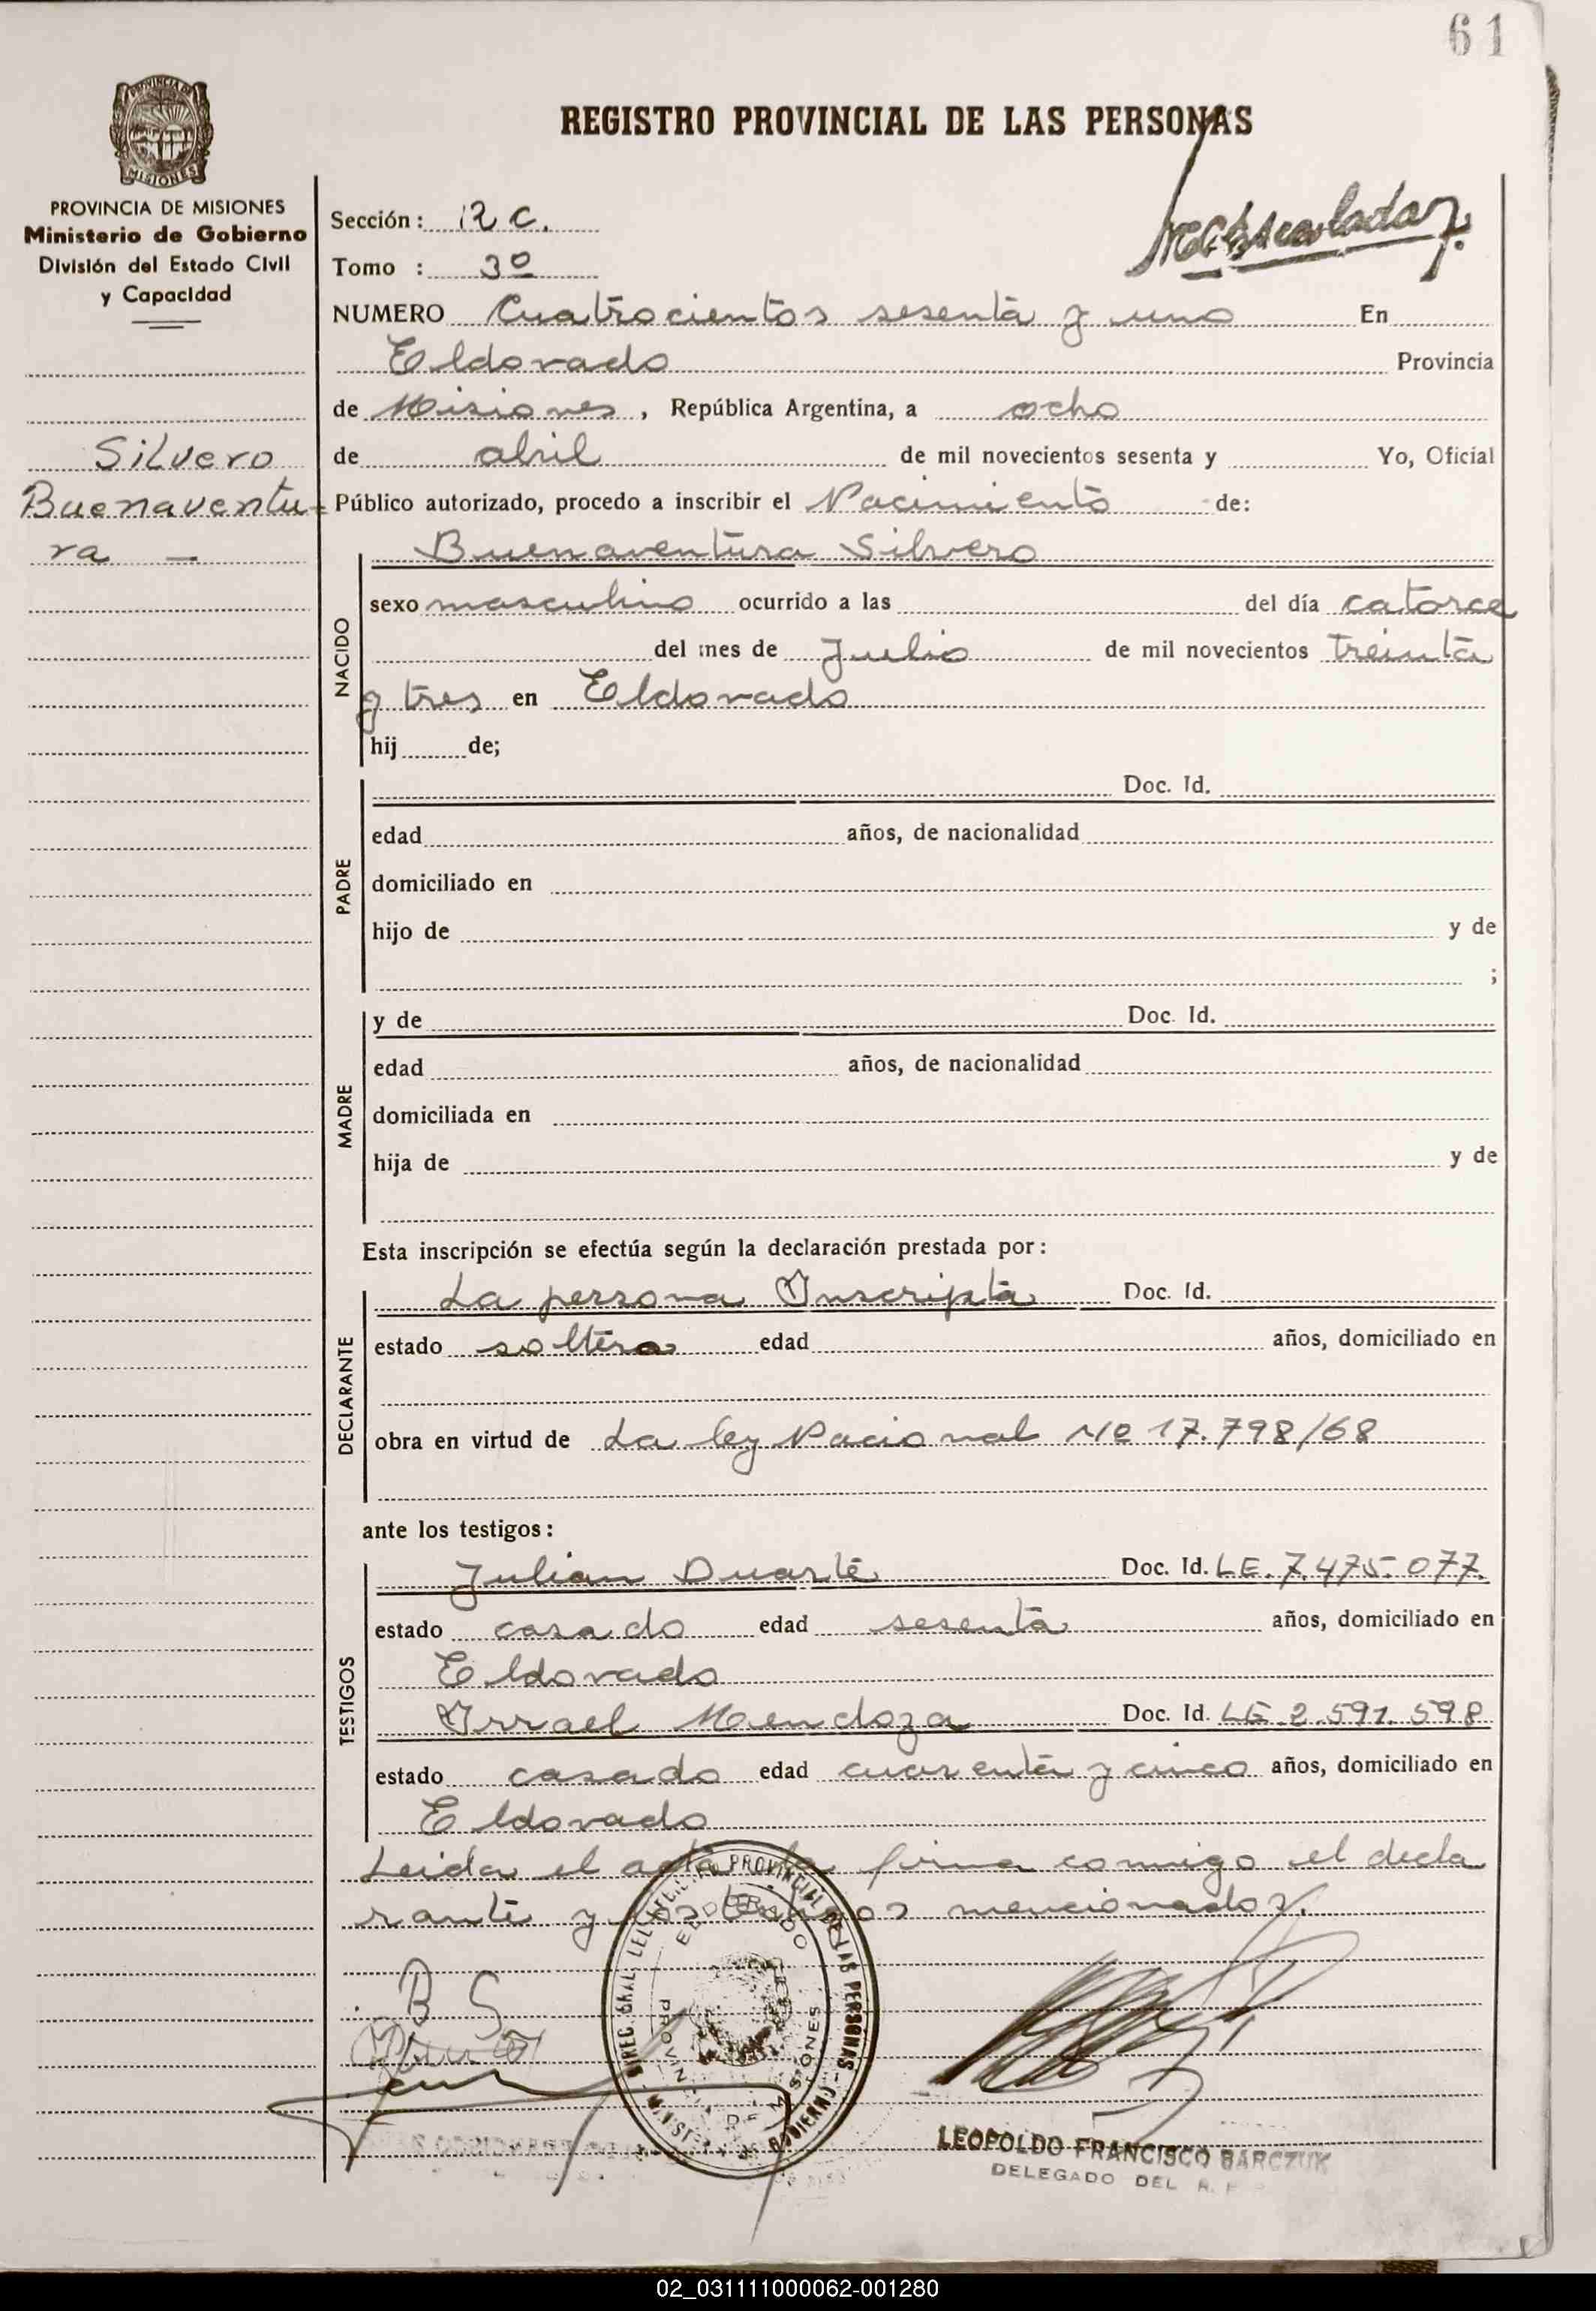 61
REGISTRO PROVINCIAL DE LAS PERSONAS
PROVINCIA DE MISIONES
MISIONES
PROVINCIA DE MISIONES
Ministerio de Gobierno
División del Estado Civil
y Capacidad
Silvero
Buenaventu-
ra -
Sección: 12 C.
Tomo : 3º
NUMERO Cuatrocientos sesenta y uno En
Eldorado Provincia
de Misiones, República Argentina, a ocho
de abril de mil novecientos sesenta y Yo, Oficial
Público autorizado, procedo a inscribir el Nacimiento de:
Buenaventura Silvero
NACIDO
sexo masculino ocurrido a las del día catorce
del mes de Julio de mil novecientos treinta
y tres en Eldorado
hij de;
PADRE
Doc. Id.
edad años, de nacionalidad
domiciliado en
hijo de y de
;
MADRE
y de Doc. Id.
edad años, de nacionalidad
domiciliada en
hija de y de
Esta inscripción se efectúa según la declaración prestada por:
DECLARANTE
La persona Inscripta Doc. Id.
estado soltero edad años, domiciliado en
obra en virtud de La ley Nacional Nº 17.798/68
ante los testigos:
TESTIGOS
Julian Duarte Doc. Id. LE. 7.475.077.
estado casado edad sesenta años, domiciliado en
Eldorado
Irrael Mendoza Doc. Id. LE. 2.591.598
estado casado edad cuarenta y cinco años, domiciliado en
Eldorado
Leida el acta la firma conmigo el decla
rante y los testigos mencionados.
B S
PROVINCIAL DE LAS PERSONAS
ELDORADO
PROVINCIA DE MISIONES
LEOPOLDO FRANCISCO BARCZUK
DELEGADO DEL R.
02_031111000062-001280